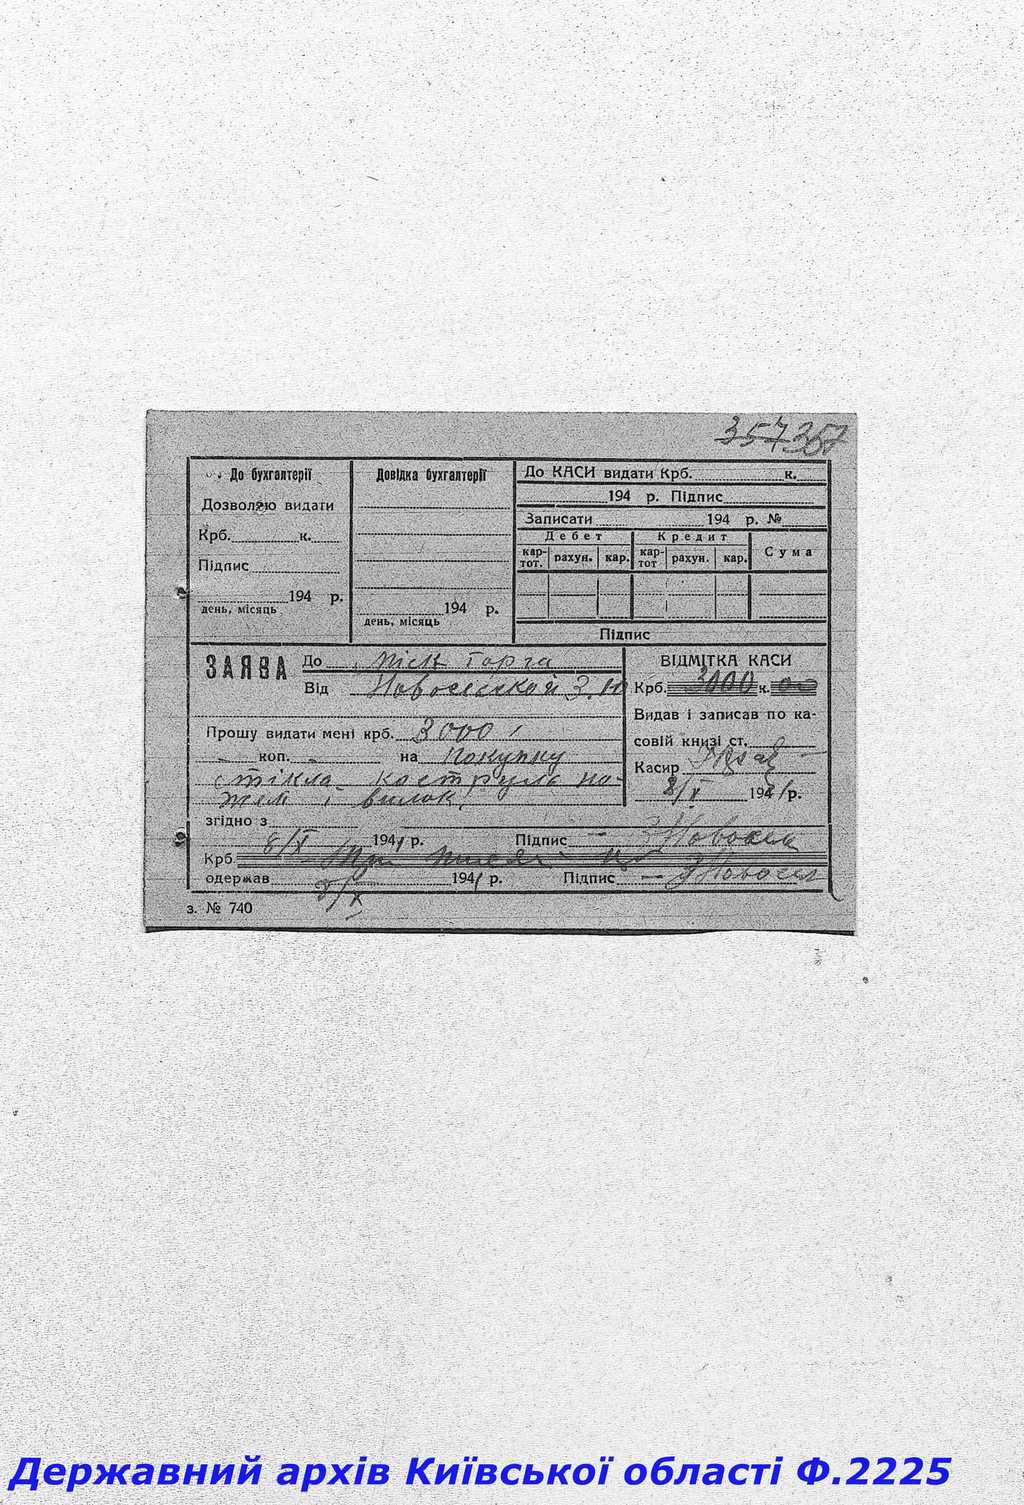 357 357
До бухгалтерії
Дозволяю видати
Крб. к.
Підпис
194 р.
день, місяць
Довідка бухгалтерії
194 р.
день, місяць
До КАСИ видати Крб. к.
194 р. Підпис
Записати 194 р. №
Дебет Кредит Сума
кар-тот. рахун. кар. кар-тот рахун. кар.
Підпис
ЗАЯВА До Торга
Від Новосельской З.
Прошу видати мені крб. 3000
коп. на покупку
стікла кострула но-
жей і вилок.
згідно з
8/X 1941 р. Підпис З Новосел
Крб. Три тисячі
одержав 8/X 1941 р. Підпис З Новосел
ВІДМІТКА КАСИ
Крб. 3000 к. 00
Видав і записав по ка-
совій книзі ст.
Касир
8/X 1941 р.
з. № 740
Державний архів Київської області Ф.2225